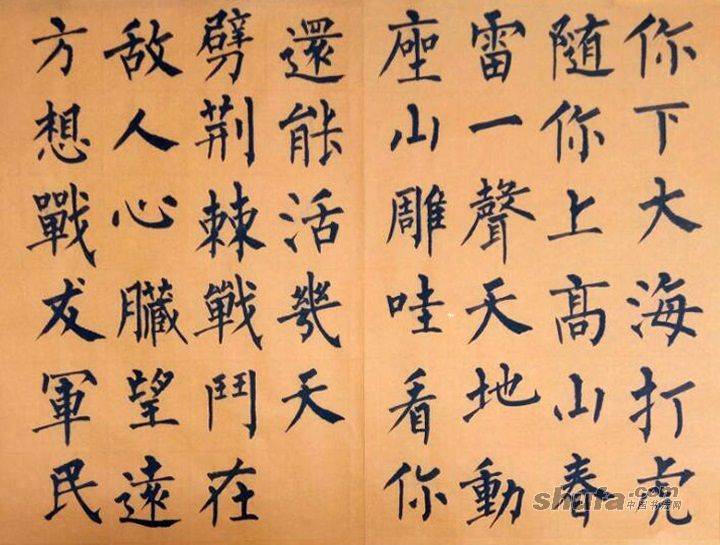 你下大海打虎
随你上髙山春
雷一聲天地動
座山雕哇看你
還能活幾天
劈荆棘戰鬥在
敌人心臓望遠
方想戰友軍民
shufa.com
中国书法网